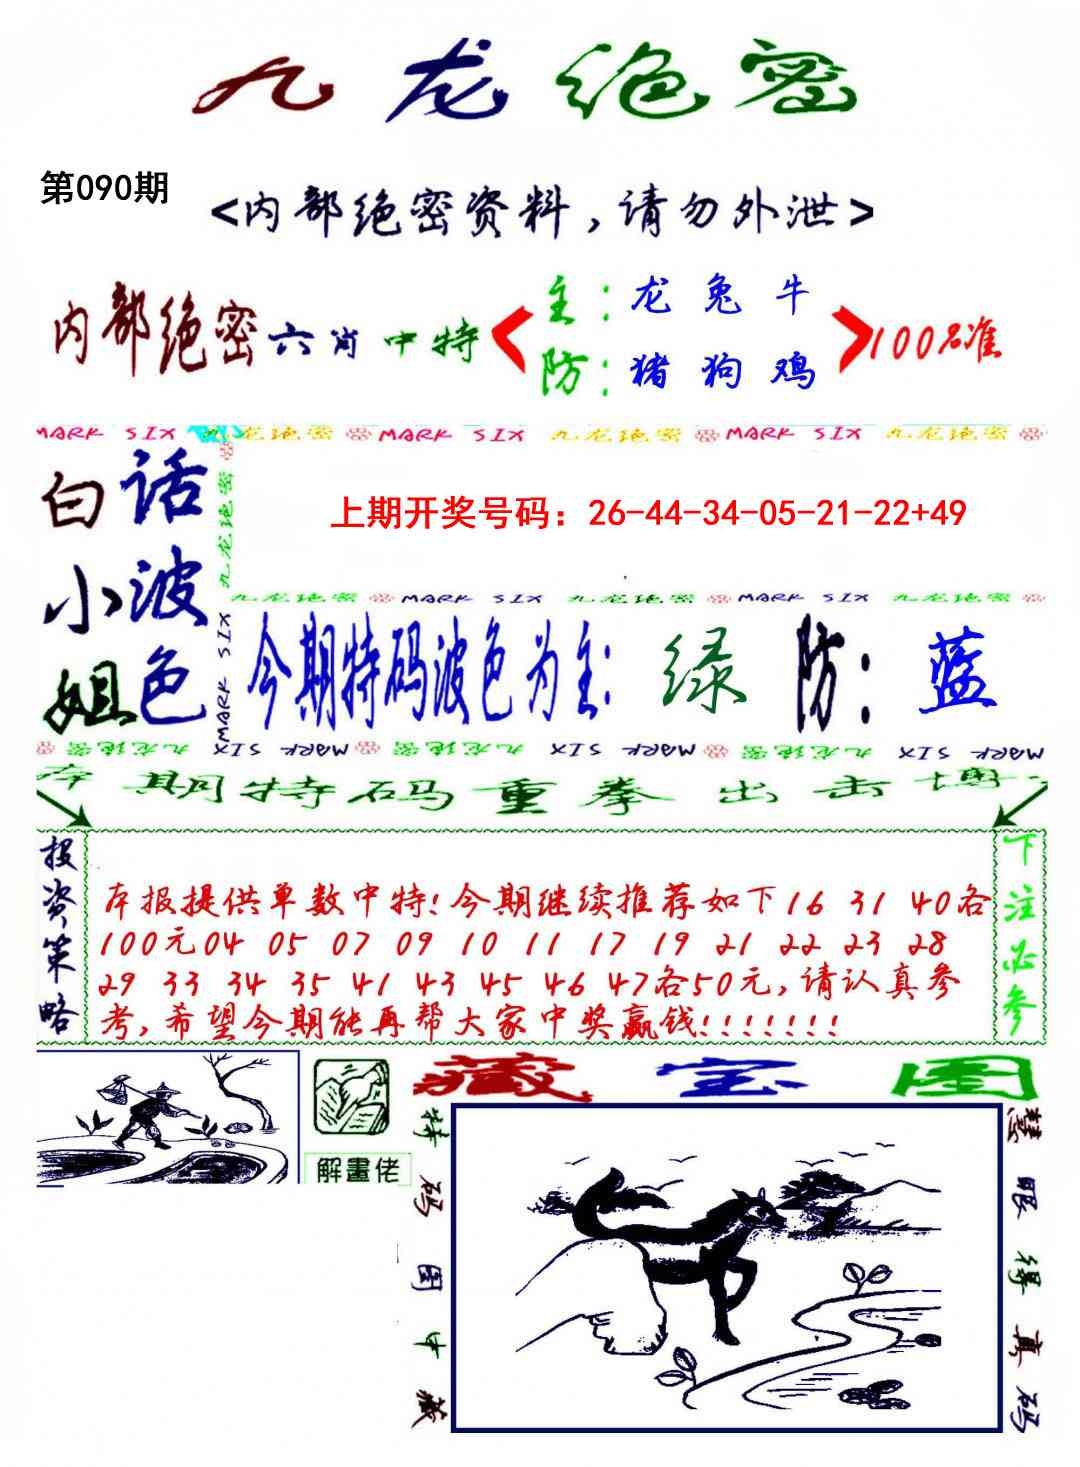 九龙绝密
第090期
<内部绝密资料,请勿外泄>
内部绝密六肖中特
主:龙兔牛
防:猪狗鸡
100%准
MARK SIX 九龙绝密 MARK SIX 九龙绝密 MARK SIX 九龙绝密
白话
小波
姐色
九龙绝密
MARK SIX
上期开奖号码：26-44-34-05-21-22+49
九龙绝密 MARK SIX 九龙绝密 MARK SIX 九龙绝密
今期特码波色为主:绿 防:蓝
九龙绝密 MARK SIX 九龙绝密 MARK SIX 九龙绝密 MARK SIX
本期特码重拳出击博
投资策略
本报提供单数中特!今期继续推荐如下16 31 40各
100元04 05 07 09 10 11 17 19 21 22 23 28
29 33 34 35 41 43 45 46 47各50元,请认真参
考,希望今期能再帮大家中奖赢钱!!!!!!!
下注必参
解畫佬
藏宝图
特码图中藏
慧眼得真码